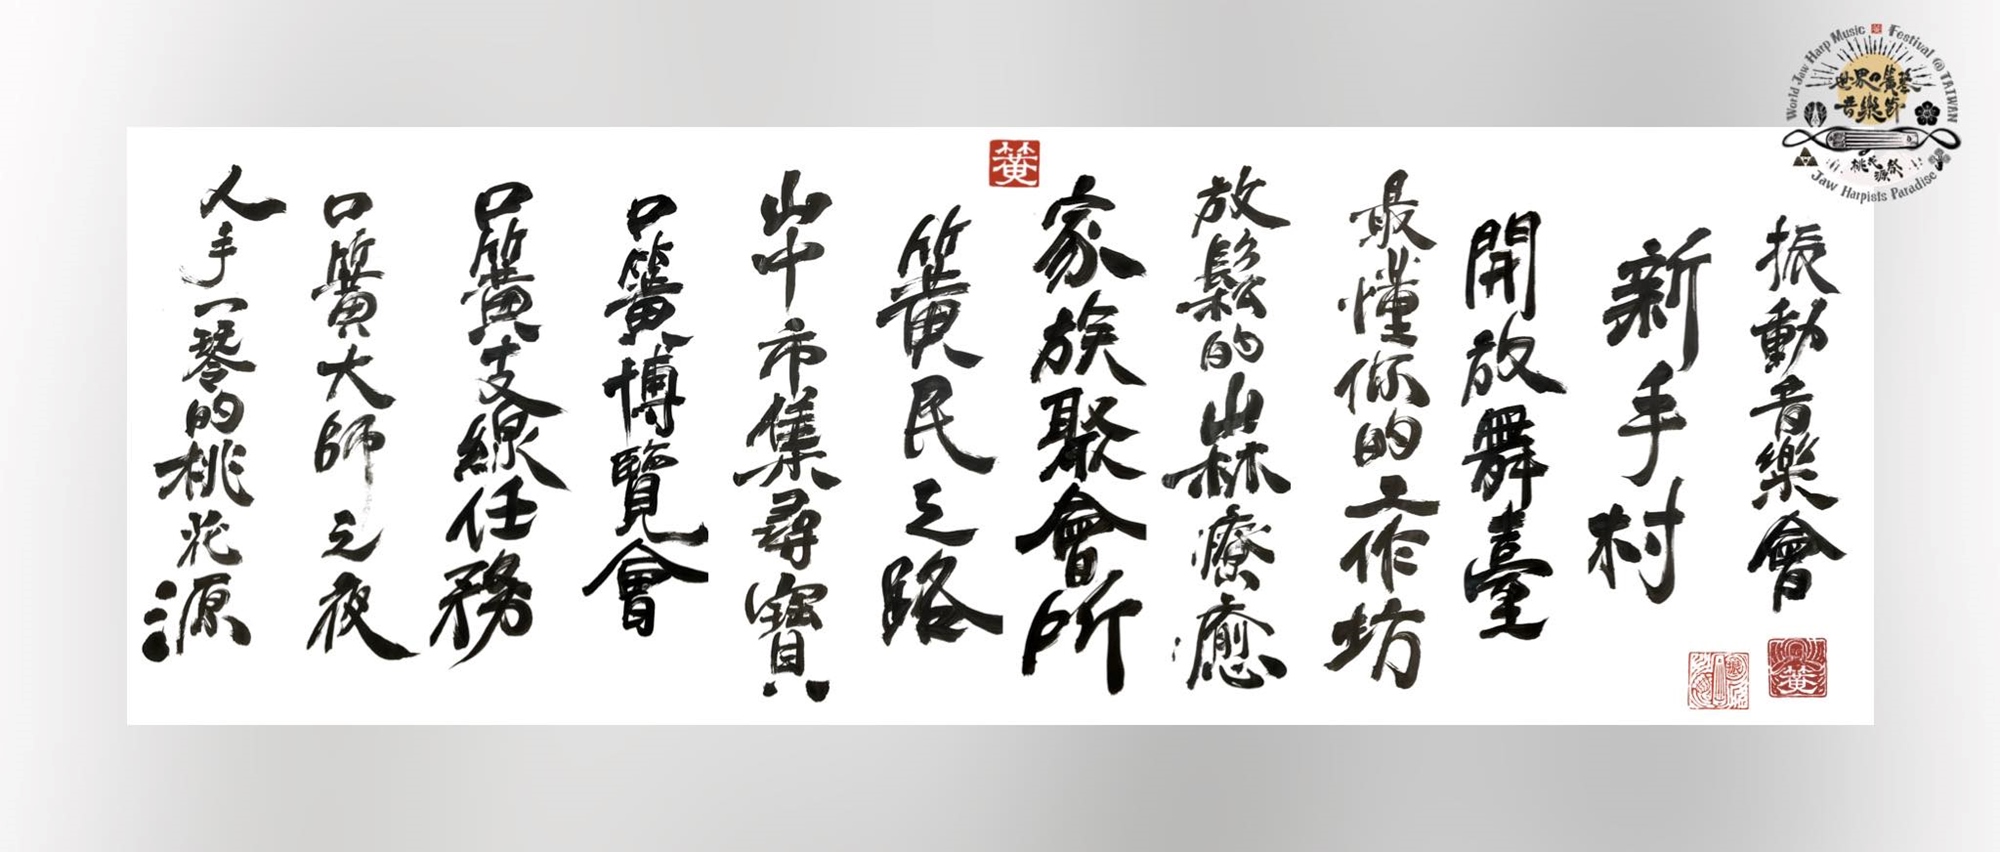 振動音樂會
新手村
開放舞臺
最懂你的工作坊
放鬆的山林療癒
家族聚會所
簧民之路
山中市集尋寶
口簧博覽會
口簧支線任務
口簧大師之夜
人手一琴的桃花源
簧
簧
World Jaw Harp Music 簧 Festival @ TAIWAN
世界口簧琴
音樂節
桃花源祭
Jaw Harpists Paradise